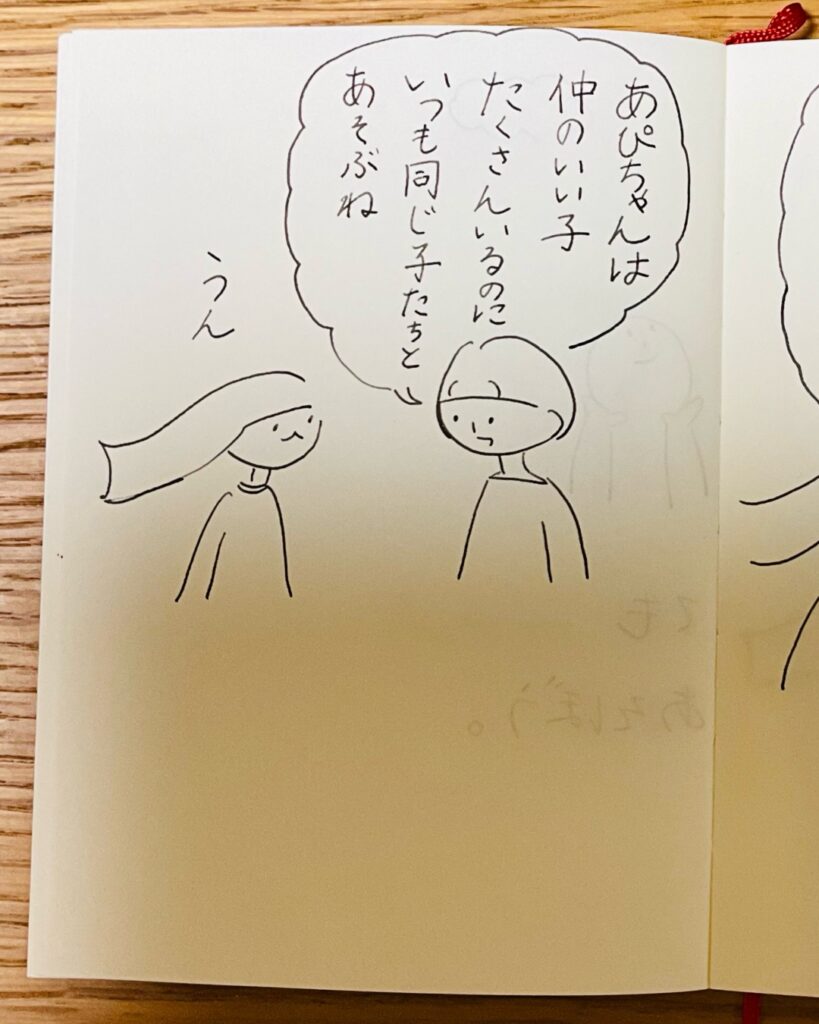 あぴちゃんは
仲のいい子
たくさんいるのに
いつも同じ子たちと
あそぶね
うん
でも
あそぼう。